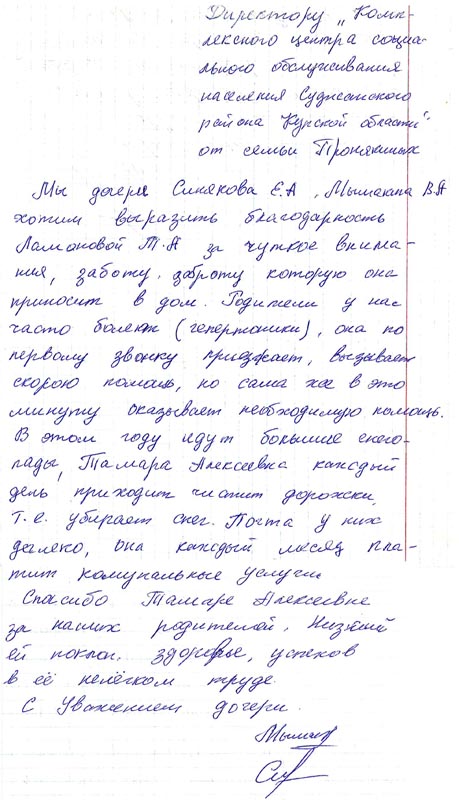 Директору „Комп-
лексного центра социа-
льного обслуживания
населения Суджанского
района Курской области"
от семьи Пронякиных
Мы дочери Синякова Е.А, В.А
хотим выразить благодарность
Ламоновой Т.А за чуткое внима-
ния, заботу, доброту которую она
приносит в дом. Родители у нас
часто болеют (гепертоники), она по
первому звонку приезжает, вызывает
скорою помощь, но сама же в это
минуту оказывает необходимую помощь.
В этом году идут большие снего-
пады, Тамара Алексеевна каждый
день приходит чистит дорожки,
т.е. убирает снег. Почта у них
далеко, она каждый месяц пла-
тит комунальные услуги.
Спасибо Тамаре Алексеевне
за наших родителей. Низкий
ей поклон, здоровье, успехов
в её нелёгком труде.
С Уважением дочери.